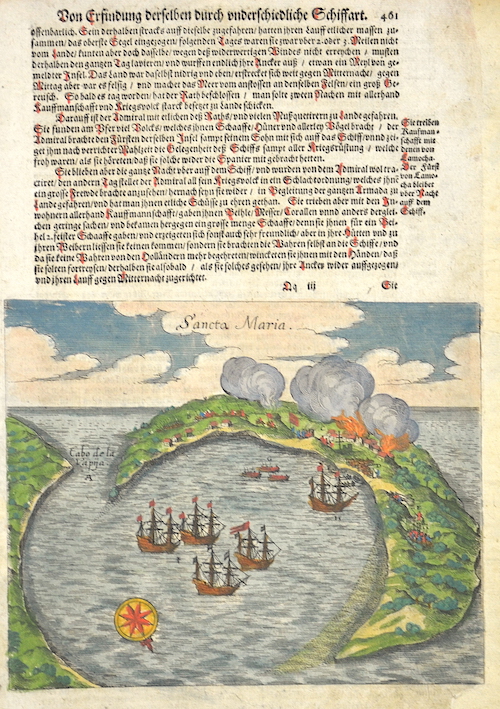 Von Erfindung derselben durch vnderschiedliche Schiffart. 461
offenbarlich. Sein derhalben stracks auff dieselbe zugefahren / hatten ihren Lauff etlicher massen zu
sammen / das oberste Segel eingezogen / folgenden Tages waren sie zwar vber 2. oder 3. Meilen nicht
vom Land / kunten aber doch dasselbe / wegen deß widerwertigen Windes nicht erreychen / musten
derhalben den gantzen Tag lavieren / vnd wurffen endlich ihre Ancker auß / etwan ein Meyl von ge-
meldter Insel. Das Land war daselbst nidrig vnd eben / erstrecket sich weit gegen Mitternacht / gegen
Mittag aber war es felsig / vnd machet das Meer vom anstossen an denselben Felsen / ein groß Ge-
reusch. So bald es tag worden / hat der Rath beschlossen / man solte zween Nachen mit allerhand
Kauffmanschafft vnd Kriegsvolck starck besetzet zu Lande schicken.
Darauff ist der Admiral mit etlichen deß Raths / vnd vielen Mußquetirern zu Land gefahren.
Sie funden am Vfer viel Volcks / welches ihnen Schaaffe / Hüner vnd allerley Vögel bracht / der
Admiral brachte den Fürsten derselben Insel sampt seinem Sohn mit sich auff das Schiff / vnnd zei-
get ihm nach verrichter Mahlzeit die Gelegenheit deß Schiffs sampt aller Kriegsrüstung / welche
froh waren / als sie höreten / daß sie solche wider die Spanier mit gebracht hetten.
Sie blieben aber die gantze Nacht vber auff dem Schiff / vnd wurden von dem Admiral wol tra-
ctiret; den andern Tag stellet der Admiral all sein Kriegsvolck in ein Schlachtordnung / welches ihnen
ein grosse Frewde bracht anzusehen: hernach seyn sie wider / in Begleitung der gantzen Armada zu
Land gefahren / vnd hat man ihnen etliche Schüsse zu ehren gethan. Sie trieben aber mit den In-
wohnern allerhand Kauffmanschafft / gaben ihnen Beihle / Messer / Corallen vnnd anders derglei-
chen geringe sachen / vnd bekamen hergegen ein grosse menge Schaaffe / denn sie ihnen für ein Bei-
hel 2. feister Schaaffe gaben / vnd erzeigeten sich sonst auch sehr freundlich / aber in ihre Hütten vnd zu
ihren Weibern liessen sie keinen kommen / sondern sie brachten die Wahren selbst an die Schiffe / vnd
da sie keine Wahren von den Holländern mehr begehreten / winckeren sie ihnen mit den Händen / daß
sie solten fortreysen / derhalben sie alsobald / als sie solches gesehen / ihre Ancker wider auffgezogen /
vnd ihren Lauff gegen Mitternacht zugerichtet.
Sie treiben
Kauffman-
schafft mit
denen von
Der Fürst
bleibet
vber Nacht
auff dem
Schiff.
Qq iij Sie
Sancta Maria.
Cabo de la
Vapija
A
H